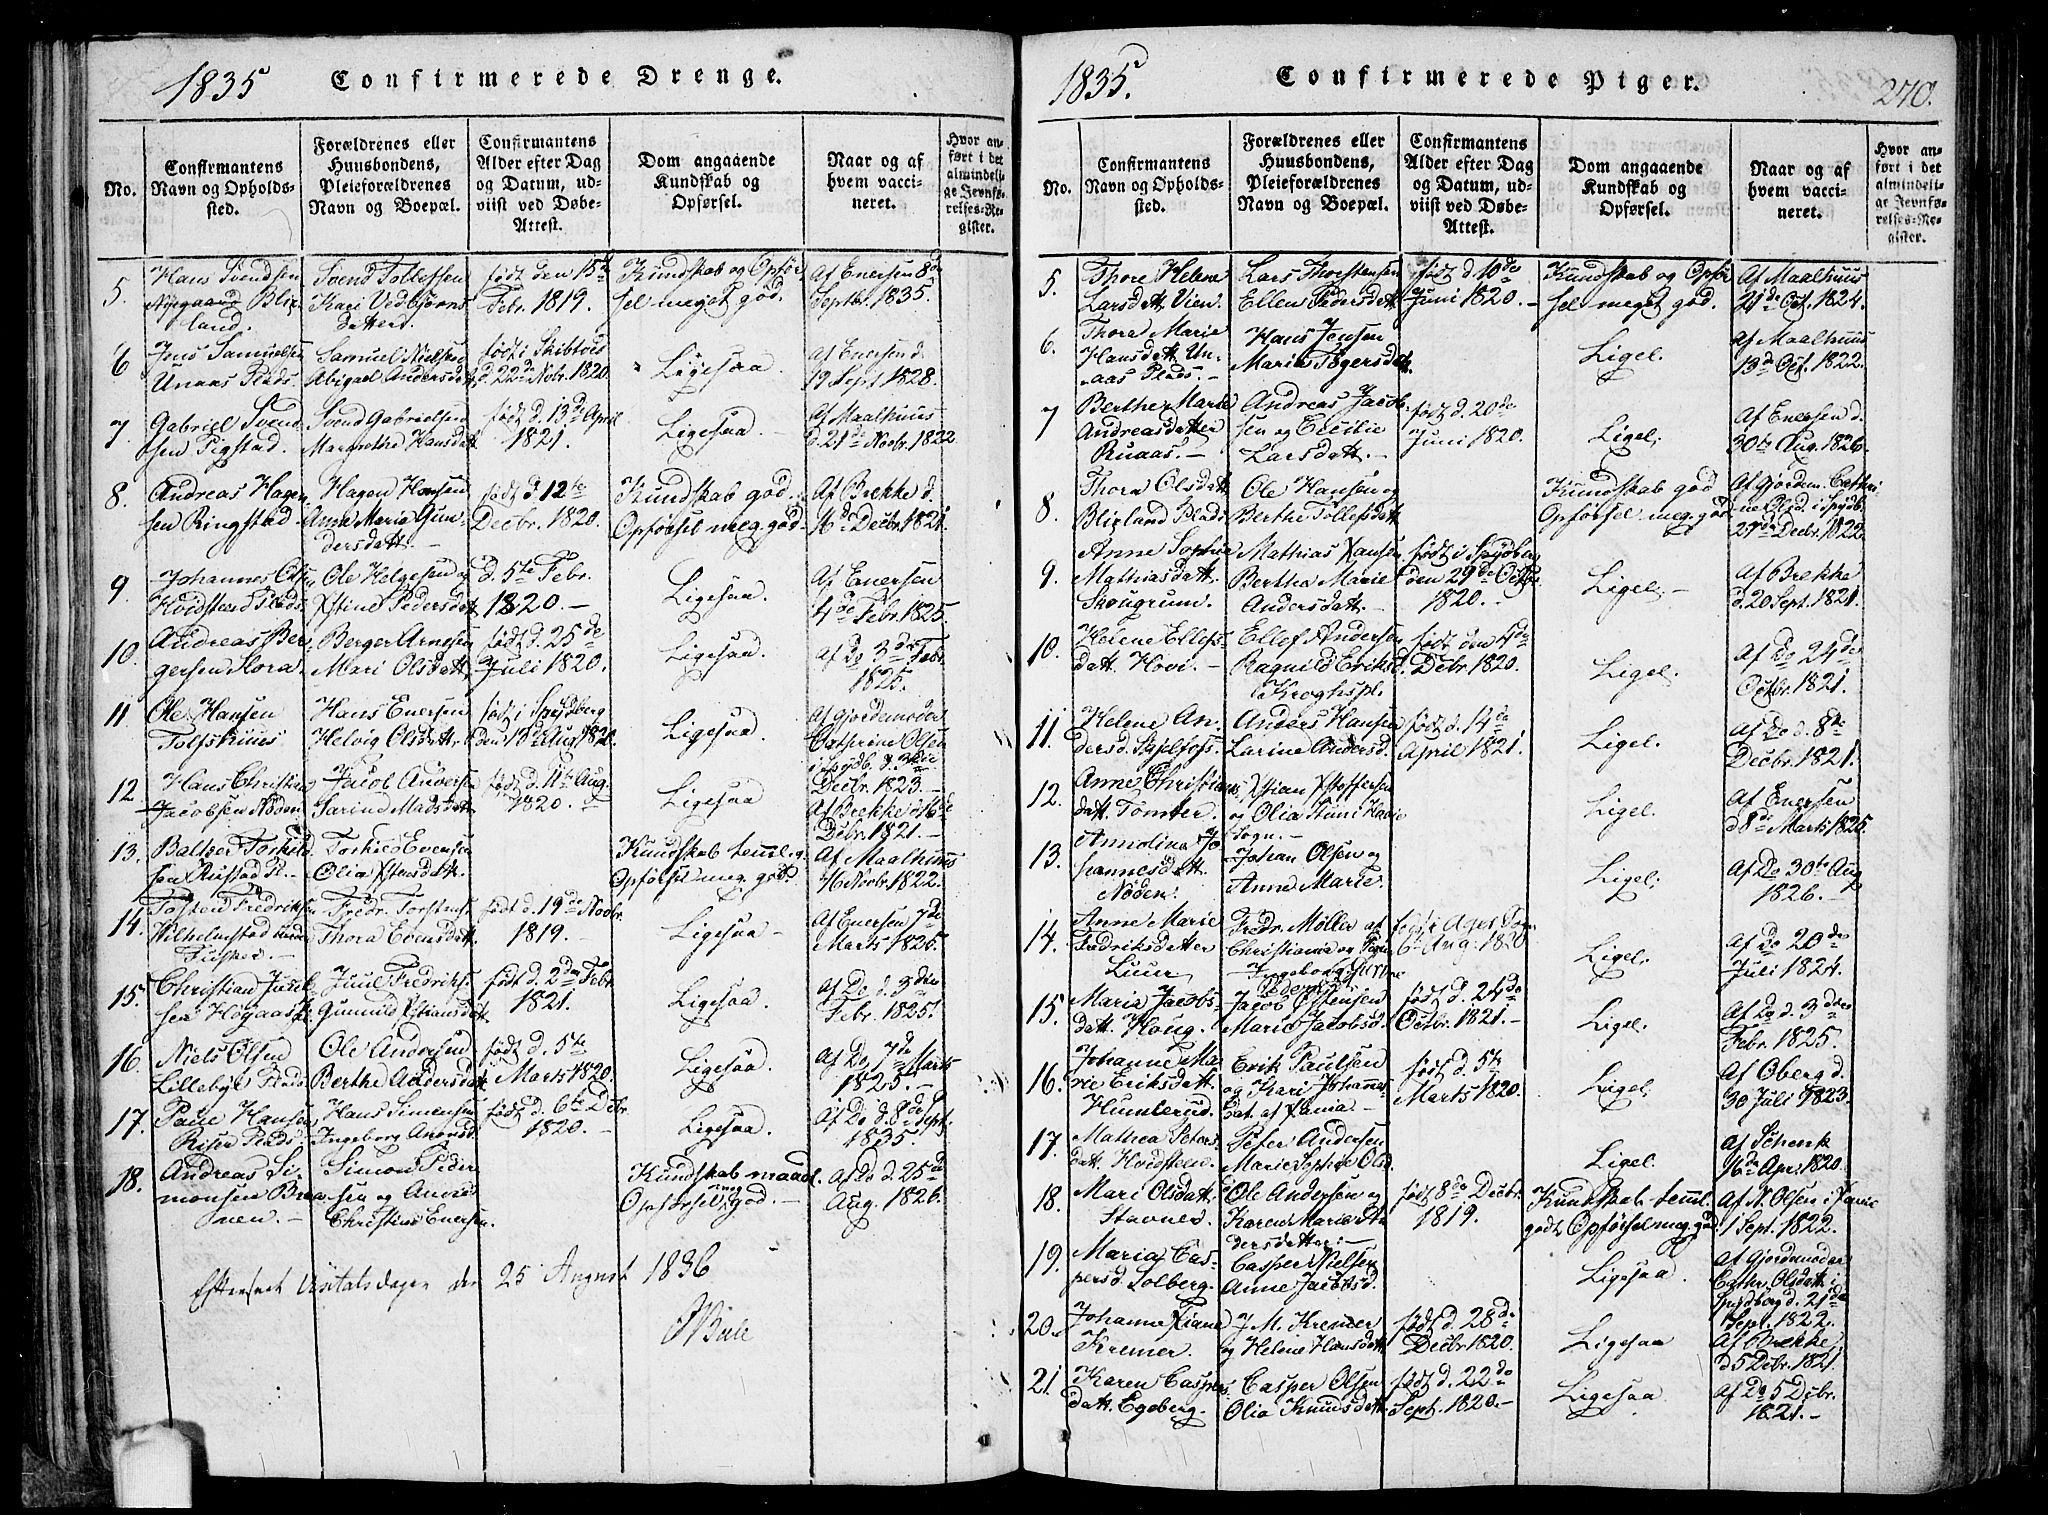 1835
Confirmerede Drenge.
No.
Confirmantens
Navn og Opholds-
sted.
Forældrenes eller
Huusbondens,
Pleieforældrenes
Navn og Boepæl.
Confirmantens
Alder efter Dag
og Datum, ud-
viist ved Døbe-
Attest.
Dom angaaende
Kundskab og
Opførsel.
Naar og af
hvem vacci-
neret.
Hvor an-
ført i det
almindeli-
ge Jevnfø-
relses-Re-
gister.
5.
Hans Svendsen
Blix-
land.
Svend Tollefsen
Kari Vedbjørns
datter
født den 15de
Febr. 1819.
Kundskab og Opfør
sel meget god.
Af Enersen 8de
Septbr. 1835.
6
Jens Samuelsen
Unaas Plads.
Samuel Nielsen
Abigael Andersdatt
født i Skibtvet
d. 22de Novbr. 1820.
Ligesaa.
Af Enersen d.
19 Sept. 1828.
7.
Gabriel Svend
sen Pigstad.
Svend Gabrielsen
Margrethe Hansdatt
født d. 13de April
1821.
Ligesaa.
Af Maalhuus
d. 21de Novbr. 1822
8.
Andreas Hagen
sen Ringstad.
Hagen Hansen
Anne Maria Gun
dersdatt. –
født d. 12te
Decbr. 1820.
Kundskab god.
Opførsel meg. god
Af Brekke d.
16de Decbr. 1821.
9
Johannes Olsen
Hvidsteen Plads
Ole Helgesen og
Xstine Pedersdat
d. 5te Febr.
1820. –
Ligesaa.
Af Enersen
4de Febr. 1825.
10.
Andreas Ber
gersen Hora
Berger Arnesen
Mari Olsdatt
født d. 25de
Juli 1820.
Ligesaa.
Af Do 3de Febr.
1825.
11
Ole Hansen
Tolfshuus
Hans Enersen
Helvig Olsdatt.
født i Spydberg
den 13de Aug. 1820.
Ligesaa.
Af Gjordemoder
Cathrine Olsen
i Spydb. d. 3die
Decbr. 1823.
12
Hans Christian
Jacobsen Nøden
Jacob Andersen
Sarine Madsdat.
født d. 11te Aug.
1820. –
Ligesaa
Af Brekke d. 16de
Decbr. 1821. –
13.
Baltzer Torkild
sen Riistad Pl.
Torkild Evensen
Olia Xstensdatt.
Kundskab teml. og
Opførsel meg. god.
Af Maalhuus
16 Novbr. 1822.
14.
Tosten Fredriksen
Wilhelmstad under
Tusker. –
Fredr. Torstens
Thora Evensdatt.
født d. 19de Novbr.
1819. –
Ligesaa.
Af Enersen 7de
Marts 1825.
15.
Christian Juul
sen Høgaas Pl.
Juul Fredriks.
Gunnild Xstiansdt.
født d. 2den Febr
1821.
Ligesaa.
Af Do d. 3die
Febr. 1825.
16.
Niels Olsen
Lillebye Plads
Ole Andersen
Berthe Andersdat
født d. 5te
Marts 1820.
Ligesaa.
Af Do 7de Marts
1825. –
17.
Paul Hansen
Risen Plads.
Hans Simensen
Ingeborg Arensd.
født d. 6te Debr.
1820.
Ligesaa.
Af Do d. 8de Sept.
1835.
18.
Andreas Si
monsen Bra
nen. –
Simon Peder
sen og Anne
Christine Enersen.
Kundskab maadl.
Opførsel meg god. –
Af Do d. 25de
Aug. 1826.
Efterseet Visitatsdagen den 25 August 1836
1835.
Confirmerede Piger.
270.
No.
Confirmantens
Navn og Opholds-
sted.
Forældrenes eller
Huusbondens,
Pleieforældrenes
Navn og Boepæl.
Confirmantens
Alder efter Dag
og Datum, ud-
viist ved Døbe-
Attest.
Dom angaaende
Kundskab og
Opførsel.
Naar og af
hvem vacci-
neret.
Hvor an-
ført i det
almindeli-
ge Jevnfø-
relses-Re-
gister.
5.
Thore Helene
Larsdatt Vien.
Lars Thorstensen
Ellen Pedersdatt
født d. 10de
Juni 1820. –
Kundskab og Opfør
sel meget god.
Af Maalhuus
21de Oct. 1824.
6.
Thora Marie
Hansdatt. Un-
aas Plads. –
Hans Jensen
Marie Tøgersdat
Ligel.
Af Maalhuus
13de Oct. 1822.
7
Berthe Marie
Andreasdatter
Ruaas. –
Andreas Jacob-
sen og Cecilie
Larsdatt. –
født d. 20de
Juni 1820.
Ligel.
Af Enersen d.
30te Aug. 1826.
8.
Thora Olsdatt
Blixland Plads
Ole Hansen og
Berthe Tollefsdatt
Kundskab god
Opførsel meg. god
Af Gjordem. Cathri-
ne Olsd. i Spydb.
27de Decbr. 1822.
9.
Anne Sophie
Mathiasdatt.
Skougrum.
Mathias Hansen
Bertha Marie
Andersdatt.
født i Spydberg
den 29de Octbr
1820. –
Ligel. –
Af Brekke
d. 20 Sept. 1821.
10.
Helene Ellefs-
datt. Hovi. –
Ellef Andersen
Ragnild Eriksd.
Kroghspl.
født den 4de
Debr. 1820.
Ligel.
Af Do 24de
Octbr. 1821.
11.
Helene An-
dersd. Sydfoss.
Anders Hansen
Larine Andersd.
født d. 14de
April 1821.
Ligel.
Af Do d. 8de
Decbr. 1821.
12.
Anne Christians
datt. Tomter.
Xstian Xstoffersen
og Olia
Sogn. –
Ligel.
Af Enersen
d 8de Marts 1825.
13.
Annolina Jo
hannesdatt.
Nøden.
Johan Olsen og
Anne Marie.
Ligel.
Af Do 30te Aug
1826. –
14.
Anne Marie
Fredriksdatter
Luur
Fredr. Møller af
Christiania og Pige
Ingeborg
født i Agers Sogn
6te Aug: 1820
Ligel.
Af Do 20de
Juli 1824.
15.
Maria Jacobs-
datt. Houg.
Jacob Østensen
Marie Jacobsd.
født d. 24de
Octbr. 1821. –
Ligel.
Af Do d. 3die
Febr. 1825.
16.
Johanne Ma
rie Eriksdatt.
Humlerud.
Erik Paulsen
og Kari Johannes
dat. af Xania –
født d. 5te
Marts 1820.
Ligel.
Af Oberg d.
30 Juli 1823.
17.
Mathea Peters
datt. Hvidsteen.
Peter Andersen
Marie Sophie Olsd
Ligel.
Af Schenk
16de Apr. 1820.
18.
Mari Olsdatt.
Stavnes.
Ole Andersen og
Karen Marie An
dersdatter. –
født 8de Decbr.
1819.
Kundskab teml.
godt Opførsel meg. god
Af N. Olsen i
1 Sept. 1822.
19.
Maria Cas-
persd. Solberg.
Casper Nielsen
Anne Jacobsd.
Ligesaa.
Af Gjordemoder
Cathr. Olsdatt. i
Spydberg d. 21de
Sept. 1822.
20.
Johanne Xiane
Kremer.
J. M. Kremer
og Helene Hansdatt
født d. 28de
Decbr 1820.
Ligesaa
Af Brekke
d 5 Debr. 1821.
21.
Karen Caspers
datt. Egeberg.
Casper Olsen
Olia Knudsdatt.
født d. 22de
Sept. 1820. –
Ligesaa
Af Do 5 Debr.
1821. –